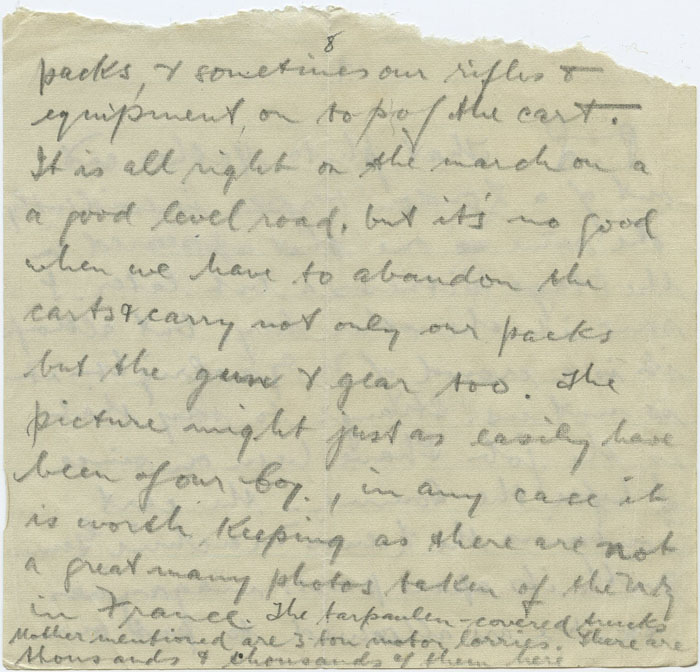 8
packs, & sometimes our rifles &
equipment, on top of the cart.
It is all right on the march on a
a good level road, but it's no good
when we have to abandon the
carts & carry not only our packs
but the guns & gear too. The
picture might just as easily have
been of our Coy., in any case it
is worth keeping as there are not
a great many photos taken of the
in France. The tarpaulen-covered trucks
Mother mentioned are 3 ton motor lorries. There are
thousands & thousands of them here